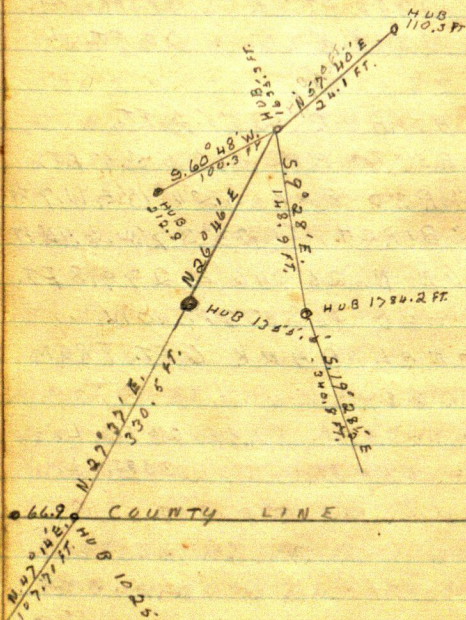 HUB
110.3 FT
N 57° 40' E
24.1 FT.
HUB
S. 60° 48' W.
100.3 FT
HUB
212.9
S. 9° 28' E.
148.9 FT.
N 26° 46' E
HUB 1784.2 FT.
HUB 1355.
S. 19° 28½' E
340.8 FT.
N. 27° 37' E.
330.5 FT.
66.9
COUNTY LINE
N. 47° 14' E.
107.71 FT.
HUB 1025